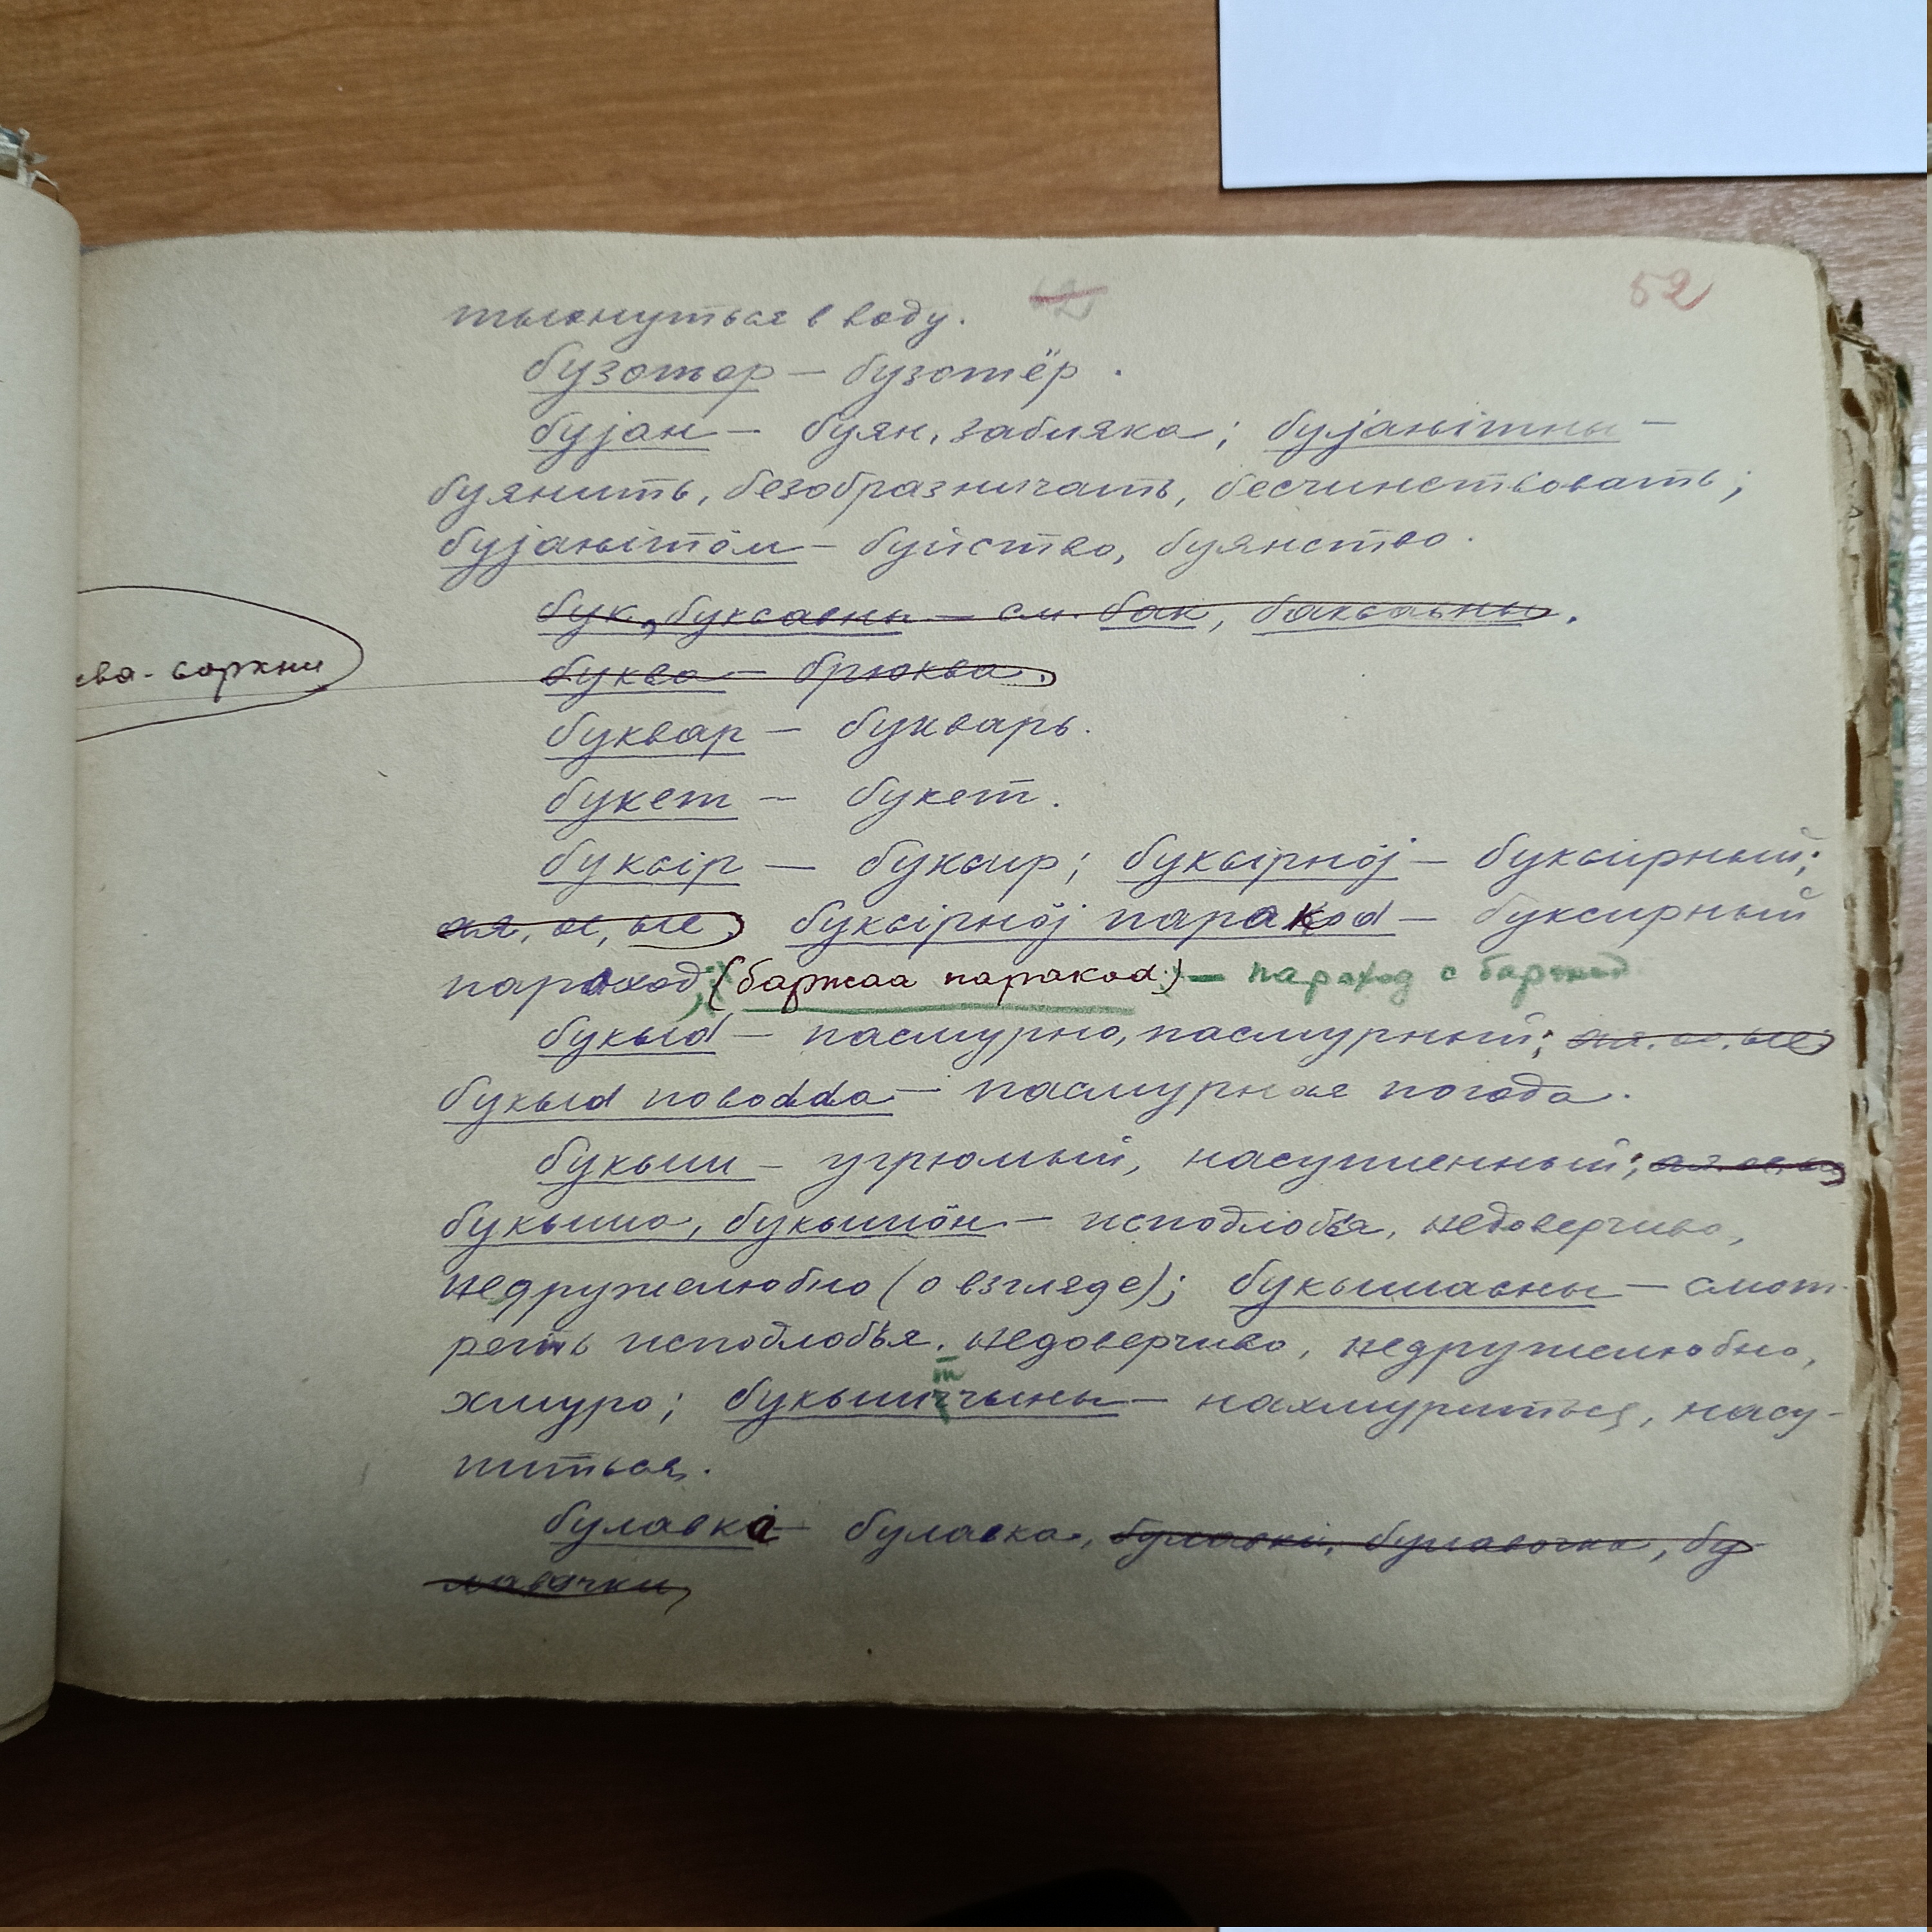 52
ткнуться в воду.
бузотор — бузотёр.
буjан — буян, забияка; буjанiтны —
буянить, безобразничать, бесчинствовать;
буjанiтöм — буйство, буянство.
бук, буксавны — см. бак, баксавны.
ева - сорткни
буква — брюква.
буквар — букварь.
букет — букет.
буксiр — буксир; буксiрнöj — буксирный;
ая, ое, ые. буксiрнöj паракоd — буксирный
пароход; (баржаа паракоd) — пароход с баржей
букыd — пасмурно, пасмурный; ая, ое, ые
букыd поводdа — пасмурная погода.
букыш — угрюмый, насупленный;
букыша, букышöн — исподлобья, недоверчиво,
недружелюбно (о взгляде); букышасны — смот-
реть исподлобья, недоверчиво, недружелюбно,
хмуро; букыштчыны — нахмуриться, насу-
питься.
булавка — булавка, булавки, булавочка, бу-
лавочки